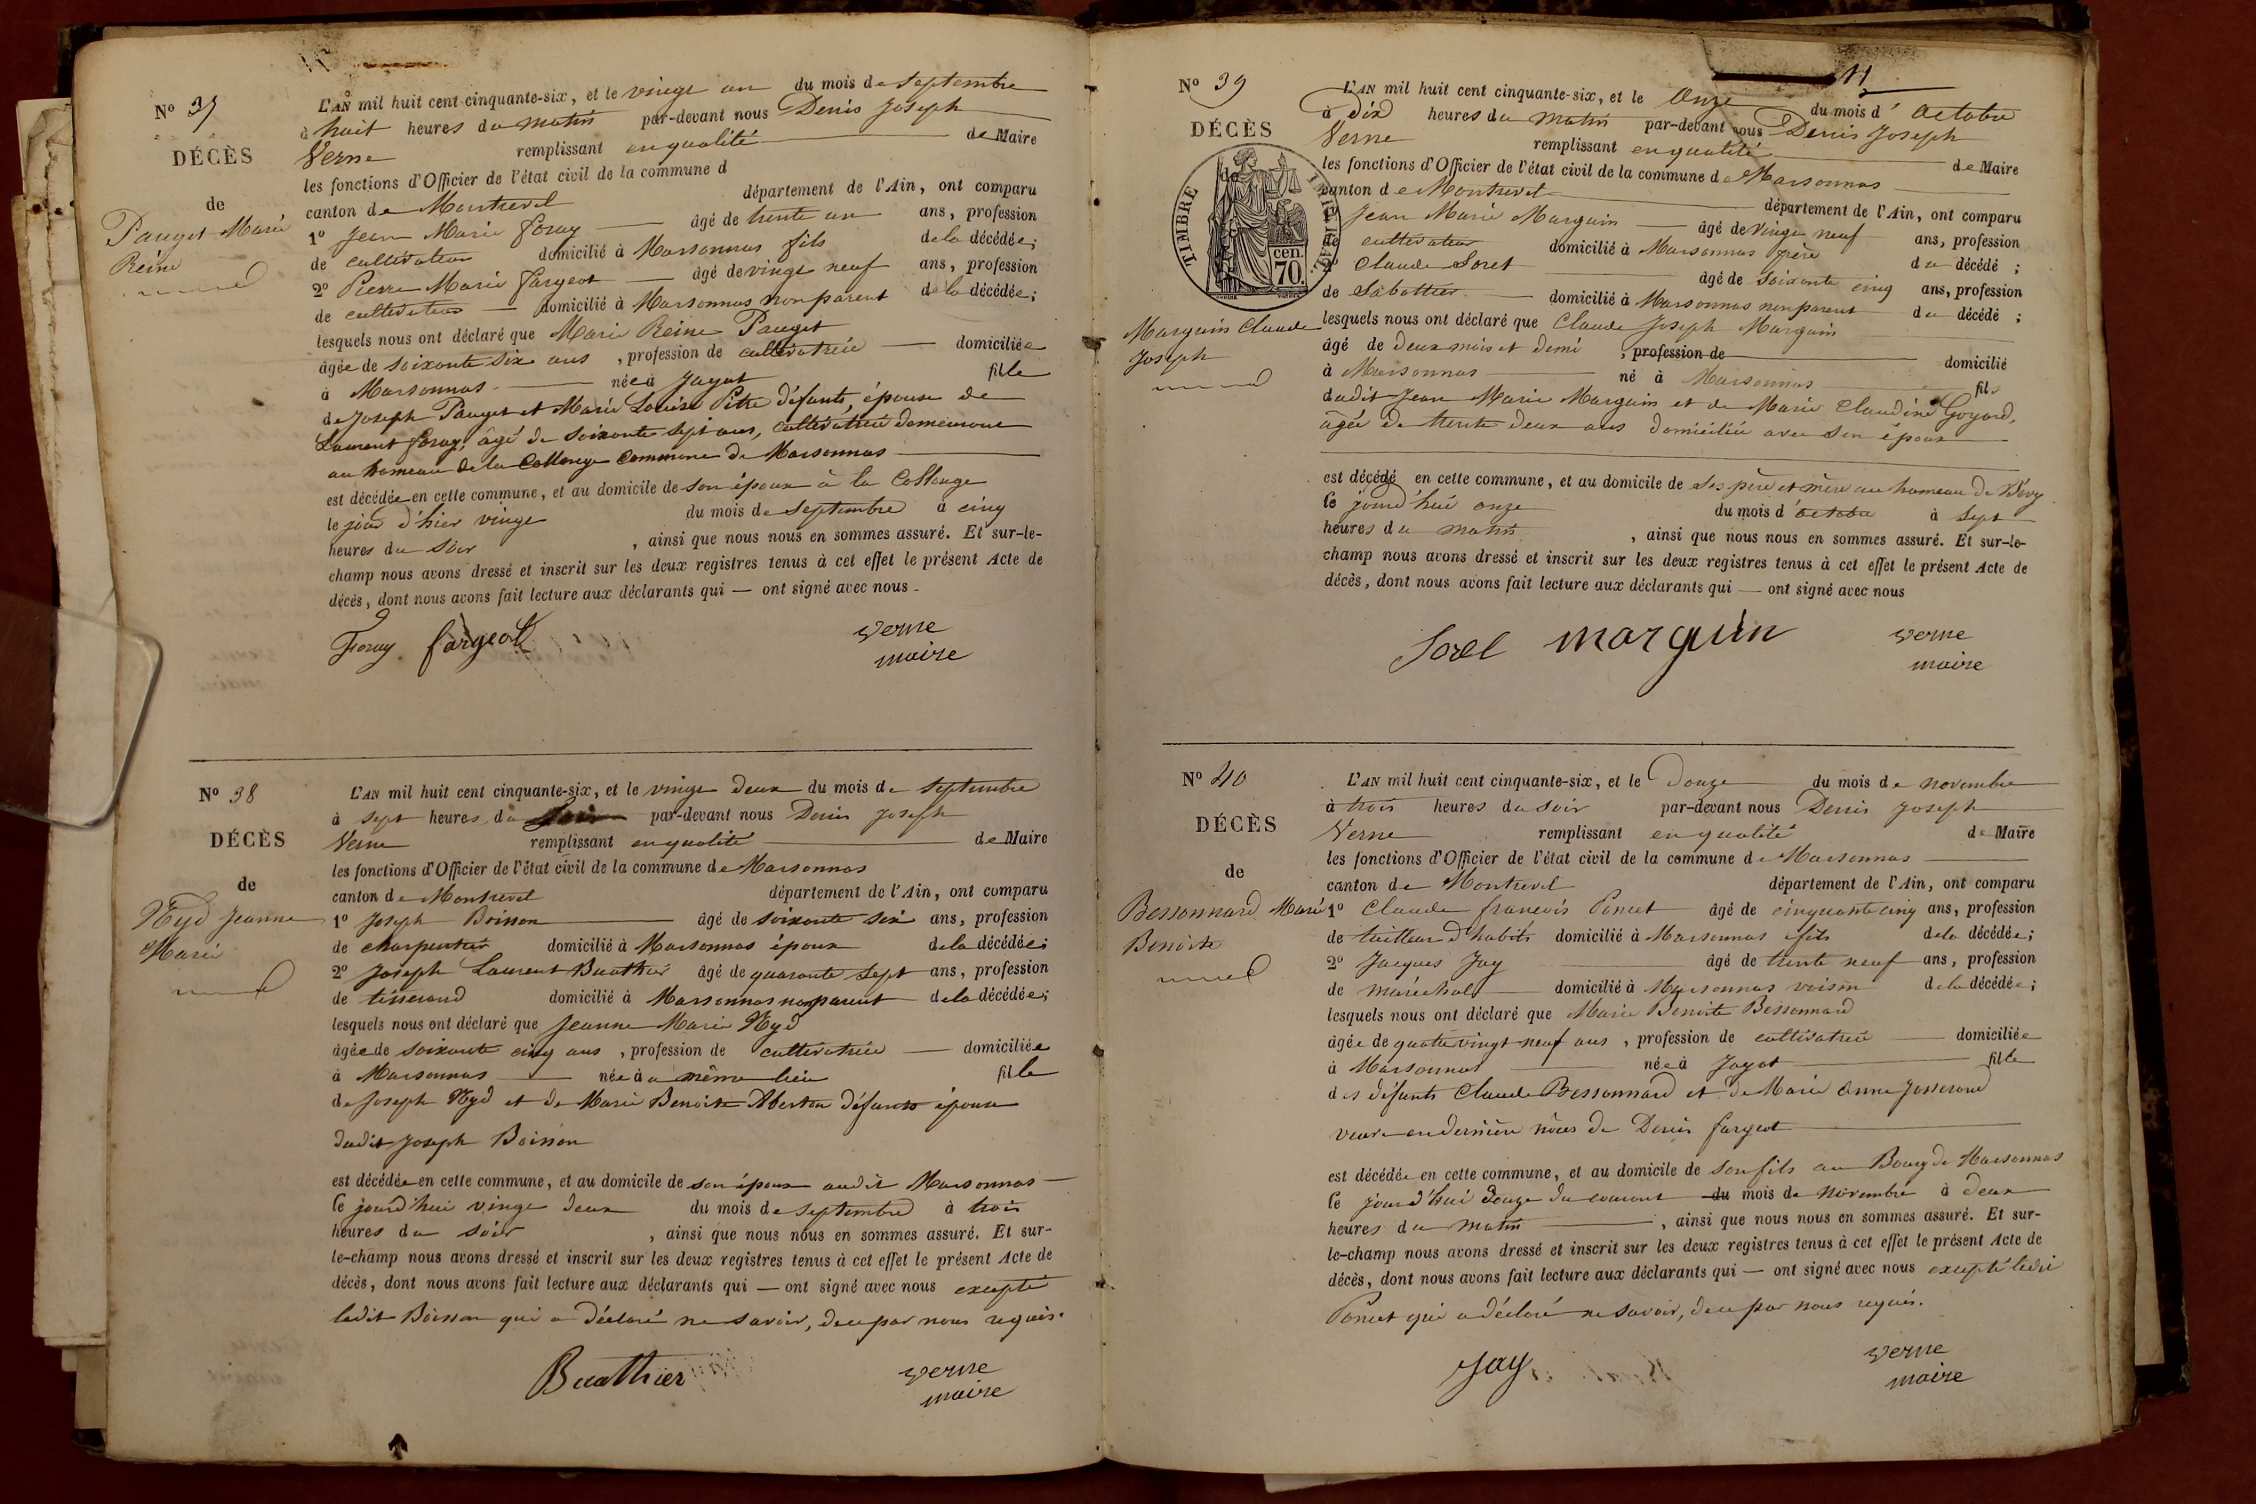 N° 37
DÉCÈS
de
Pauget Marie
Reine
L'AN mil huit cent cinquante-six, et le vingt un du mois de Septembre
à huit heures du matin par-devant nous Denis Joseph
Verne remplissant en qualité de Maire
les fonctions d'Officier de l'état civil de la commune d
canton de Montrevel département de l'Ain, ont comparu
1° Jean Marie foray âgé de trente un ans, profession
de cultivateur domicilié à Marsonnas fils de la décédée;
2° Pierre Marie fargeot âgé de vingt neuf ans, profession
de cultivateur domicilié à Marsonnas non parent de la décédée;
lesquels nous ont déclaré que Marie Reine Pauget
âgée de soixante six ans, profession de cultivatrice domiciliée
à Marsonnas née à Jayat fille
de Joseph Pauget et Marie Louise Pitre défunts, épouse de
Laurent foray, âgé de soixante sept ans, cultivatrice demeurant
au hameau de la Collonge commune de Marsonnas
est décédée en cette commune, et au domicile de son époux à la Collonge
le jour d'hier vingt du mois de septembre à cinq
heures du soir, ainsi que nous nous en sommes assuré. Et sur-le-
champ nous avons dressé et inscrit sur les deux registres tenus à cet effet le présent Acte de
décès, dont nous avons fait lecture aux déclarants qui — ont signé avec nous.
Foray fargeot verne
maire
N° 38
DÉCÈS
de
Nyd Jeanne
Marie
L'AN mil huit cent cinquante-six, et le vingt deux du mois de septembre
à sept heures du soir par-devant nous Denis Joseph
Verne remplissant en qualité de Maire
les fonctions d'Officier de l'état civil de la commune de Marsonnas
canton de Montrevel département de l'Ain, ont comparu
1° Joseph Boisson âgé de soixante six ans, profession
de charpentier domicilié à Marsonnas époux de la décédée;
2° Joseph Laurent Buathier âgé de quarante sept ans, profession
de tisserand domicilié à Marsonnas non parent de la décédée;
lesquels nous ont déclaré que Jeanne Marie Nyd
âgée de soixante cinq ans, profession de cultivatrice domiciliée
à Marsonnas née à u même lieu fille
de Joseph Nyd et de Marie Benoite Aberton défunts épouse
dudit Joseph Boisson
est décédée en cette commune, et au domicile de son époux audit Marsonnas
le jourd'hui vingt deux du mois de septembre à trois
heures du soir, ainsi que nous nous en sommes assuré. Et sur-
le-champ nous avons dressé et inscrit sur les deux registres tenus à cet effet le présent Acte de
décès, dont nous avons fait lecture aux déclarants qui — ont signé avec nous excepté
ledit Boisson qui a déclaré ne savoir, de ce par nous requis.
Buathier verne
maire
11
N° 39
DÉCÈS
de
TIMBRE IMPÉRIAL
70 cen.
Marguin Claude
Joseph
L'AN mil huit cent cinquante-six, et le Onze du mois d'Octobre
à dix heures du matin par-devant nous Denis Joseph
Verne remplissant en qualité de Maire
les fonctions d'Officier de l'état civil de la commune de Marsonnas
canton de Montrevel département de l'Ain, ont comparu
Jean Marie Marguin âgé de vingt neuf ans, profession
de cultivateur domicilié à Marsonnas père du décédé;
Claude Soret âgé de soixante cinq ans, profession
de Sabottier domicilié à Marsonnas non parent du décédé;
lesquels nous ont déclaré que Claude Joseph Marguin
âgé de deux mois et demi, profession de domicilié
à Marsonnas né à Marsonnas fils
dudit Jean Marie Marguin et de Marie Claudine Goyard,
âgée de trente deux ans domiciliée avec son époux
est décédé en cette commune, et au domicile de ses père et mère au hameau de
le jourd'hui onze du mois d'octobre à sept
heures du matin, ainsi que nous nous en sommes assuré. Et sur-le-
champ nous avons dressé et inscrit sur les deux registres tenus à cet effet le présent Acte de
décès, dont nous avons fait lecture aux déclarants qui — ont signé avec nous
Sorel marguin verne
maire
N° 40
DÉCÈS
de
Bessonnard Marie
Benoite
L'AN mil huit cent cinquante-six, et le Douze du mois de novembre
à trois heures du soir par-devant nous Denis Joseph
Verne remplissant en qualité de Maire
les fonctions d'Officier de l'état civil de la commune de Marsonnas
canton de Montrevel département de l'Ain, ont comparu
1° Claude francois Poncet âgé de cinquante cinq ans, profession
de tailleur d'habits domicilié à Marsonnas fils de la décédée;
2° Jacques Jay âgé de trente neuf ans, profession
de maréchal domicilié à Marsonnas voisin de la décédée;
lesquels nous ont déclaré que Marie Benoite Bessonnard
âgée de quatre vingt neuf ans, profession de cultivatrice domiciliée
à Marsonnas née à Jayat fille
des défunts Claude Bessonnard et de Marie Anne Josserand
veuve en dernière nôces de Denis fargeot
est décédée en cette commune, et au domicile de son fils au Bourg de Marsonnas
le jourd'hui douze du courant du mois de novembre à deux
heures du matin, ainsi que nous nous en sommes assuré. Et sur-
le-champ nous avons dressé et inscrit sur les deux registres tenus à cet effet le présent Acte de
décès, dont nous avons fait lecture aux déclarants qui — ont signé avec nous excepté ledit
Poncet qui a déclaré ne savoir, de ce par nous requis.
Jay verne
maire